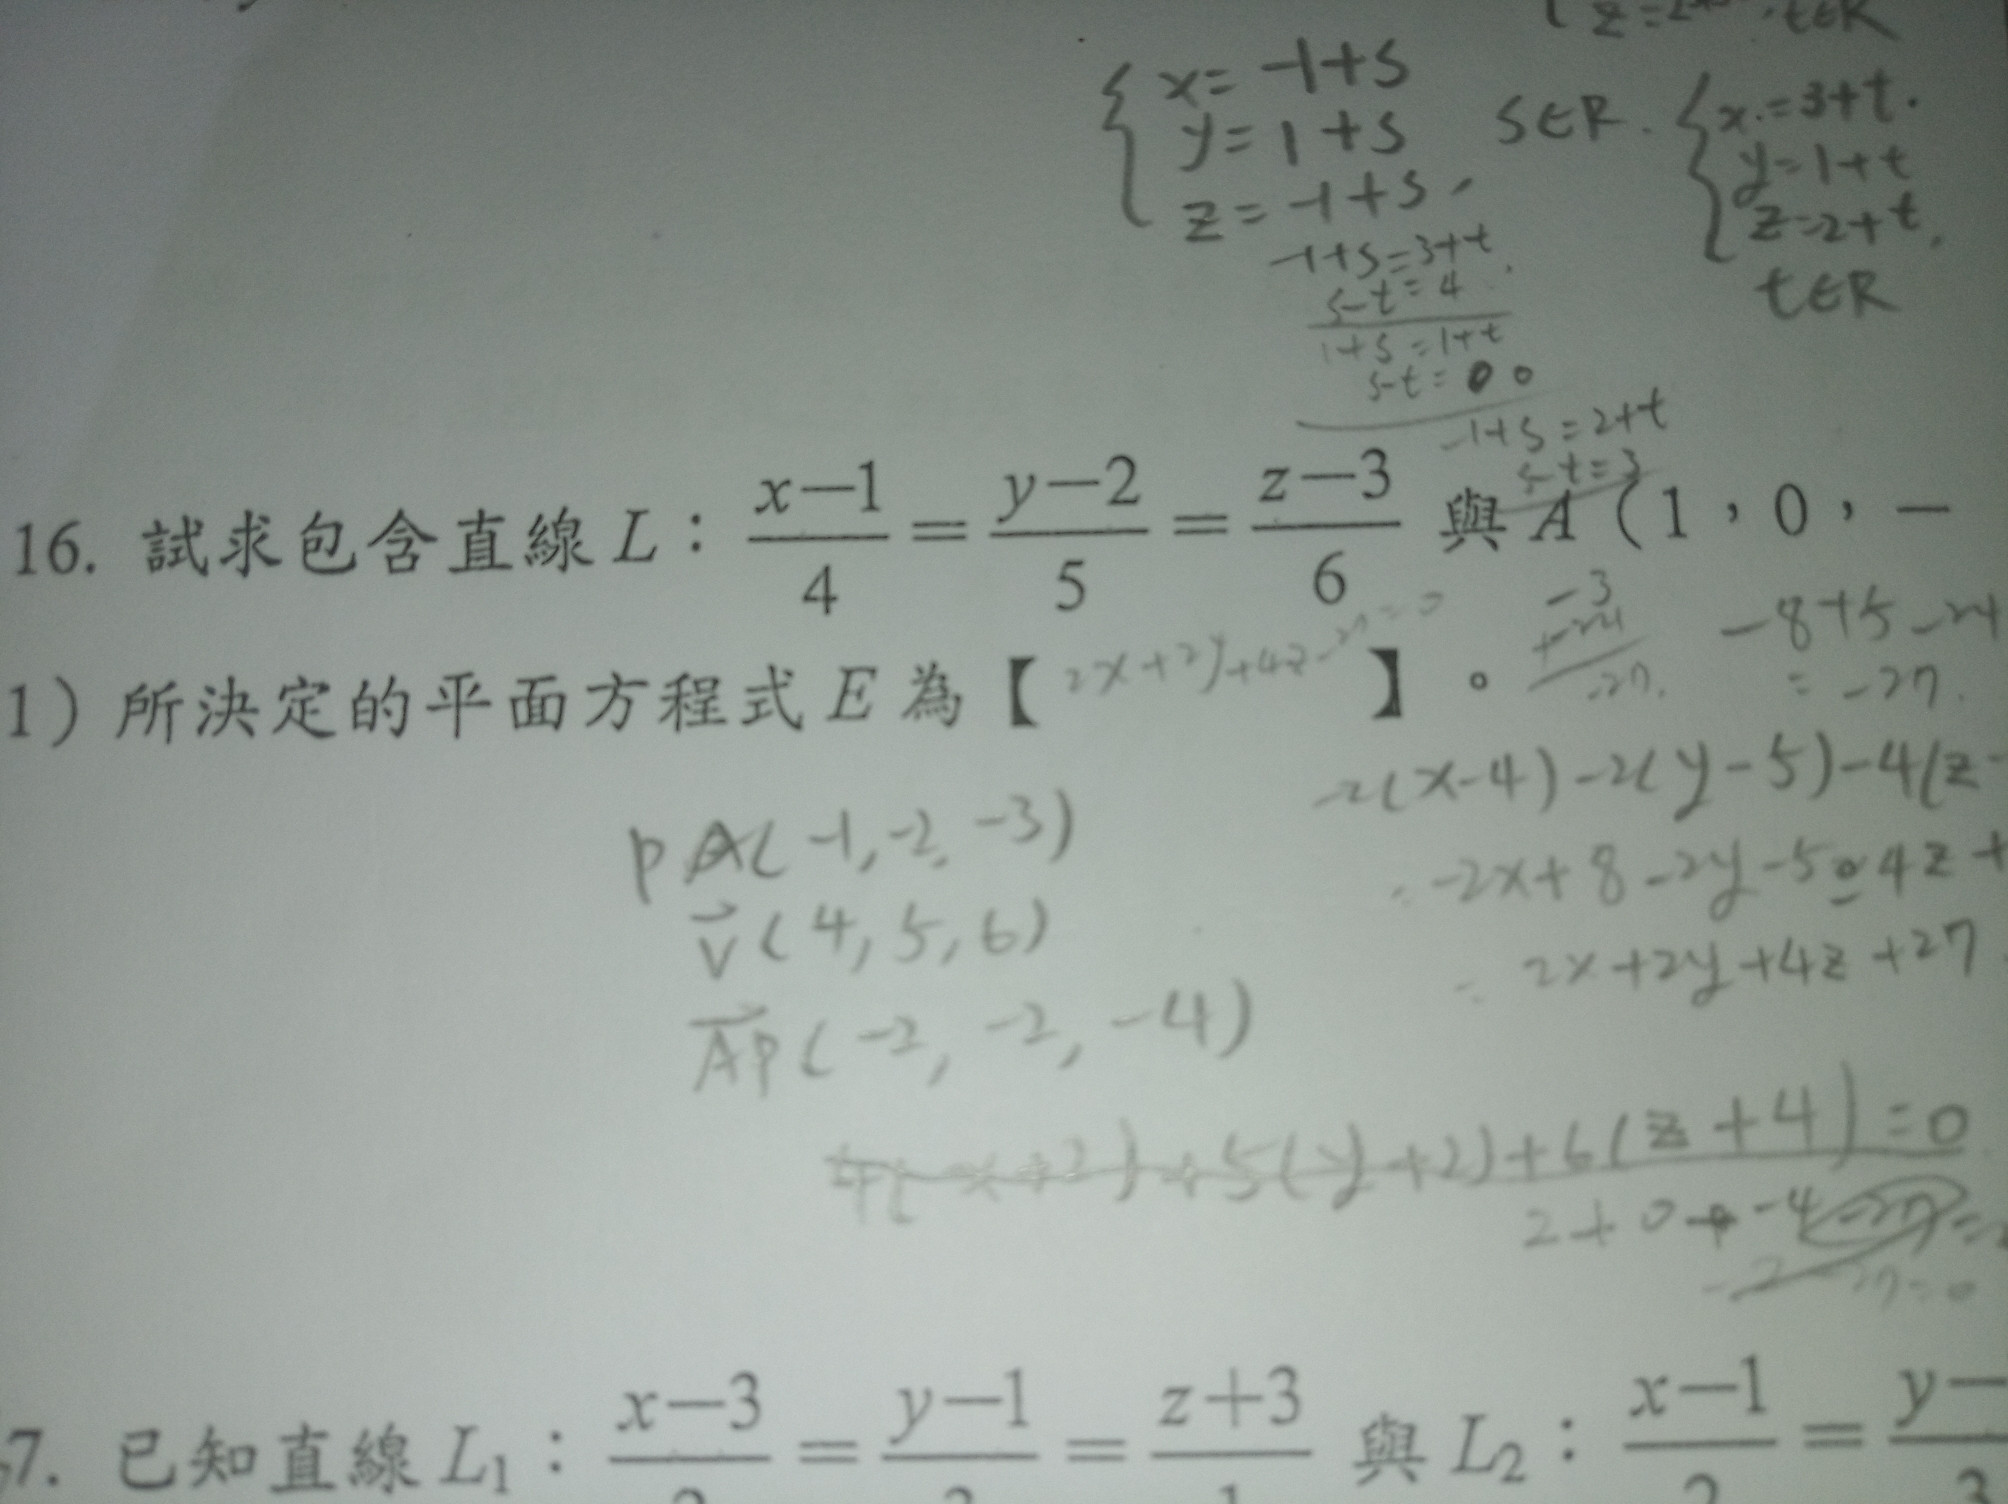 z=2 , t∈R
{ x= -1+s
y= 1+s
z= -1+s ,
s∈R .
{ x.=3+t.
y=1+t
z=2+t,
t∈R
-1+s=3+t
s-t=4
1+s=1+t
s-t=0 0
-1+s=2+t
s-t=3
16. 試求包含直線 L：x-1/4 = y-2/5 = z-3/6 與 A（1，0，-
1）所決定的平面方程式 E 為【 2x+2y+4z-27=0 】。
-3
+-24
-27.
-8+5-24
= -27.
P A(-1,-2,-3)
v(4,5,6)
AP(-2,-2,-4)
-2(x-4)-2(y-5)-4(z-
-2x+8-2y-5 4z+
2x+2y+4z+27
4(x+2)+5(y+2)+6(z+4)=0
2+0+-4-27=
-2-27=0
7. 已知直線 L₁：x-3 = y-1 = z+3/1 與 L₂：x-1/2 = y-/3